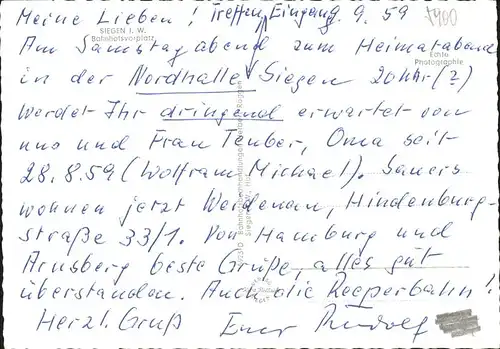 Meine Lieben! Treffen Eingang. 9. 59
SIEGEN I. W.
Bahnhofsvorplatz
Echte
Photographie
Am Samstag abend zum Heimatabend
in der Nordhalle Siegen 20 Uhr (?)
werdet Ihr dringend erwartet von
uns und Frau Teuber, Oma seit
28.8.59 (Wolfram Michael). Sauers
wohnen jetzt Werdenau, Hindenburg-
straße 33/1. Von Hamburg und
Arnsberg beste Grüße, alles gut
überstanden. Auch die Reeperbahn!
Herzl. Gruß Euer Rudolf